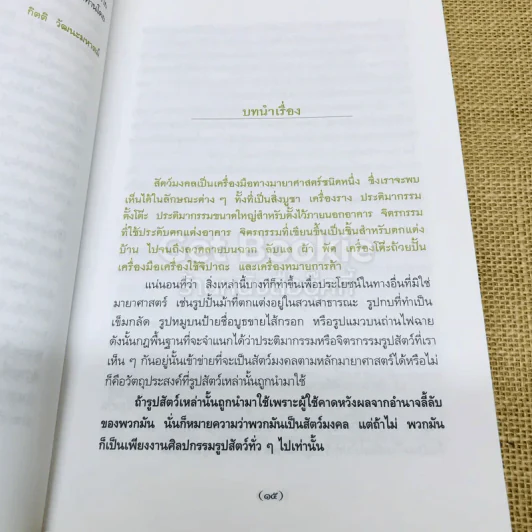 กิตติ วัฒนะมหาตม์
บทนำเรื่อง
สัตว์มงคลเป็นเครื่องมือทางมายาศาสตร์ชนิดหนึ่ง ซึ่งเราจะพบ
เห็นได้ในลักษณะต่าง ๆ ทั้งที่เป็นสิ่งบูชา เครื่องราง ประติมากรรม
ตั้งโต๊ะ ประติมากรรมขนาดใหญ่สำหรับตั้งไว้ภายนอกอาคาร จิตรกรรม
ที่ใช้ประดับตกแต่งอาคาร จิตรกรรมที่เขียนขึ้นเป็นชิ้นสำหรับตกแต่ง
บ้าน ไปจนถึงลวดลายบน ผ้า พัด เครื่องโต๊ะถ้วยปั้น
เครื่องมือเครื่องใช้จิปาถะ และเครื่องหมายการค้า
แน่นอนที่ว่า สิ่งเหล่านี้บางทีก็ทำขึ้นเพื่อประโยชน์ในทางอื่นที่มิใช่
มายาศาสตร์ เช่นรูปปั้นม้าที่ตกแต่งอยู่ในสวนสาธารณะ รูปกบที่ทำเป็น
เข็มกลัด รูปหมูบนป้ายชื่อบูธขายไส้กรอก หรือรูปแมวบนถ่านไฟฉาย
ดังนั้นกฎพื้นฐานที่จะจำแนกได้ว่าประติมากรรมหรือจิตรกรรมรูปสัตว์ที่เรา
เห็น ๆ กันอยู่นั้นเข้าข่ายที่จะเป็นสัตว์มงคลตามหลักมายาศาสตร์ได้หรือไม่
ก็คือวัตถุประสงค์ที่รูปสัตว์เหล่านั้นถูกนำมาใช้
ถ้ารูปสัตว์เหล่านั้นถูกนำมาใช้เพราะผู้ใช้คาดหวังผลจากอำนาจลี้ลับ
ของพวกมัน นั่นก็หมายความว่าพวกมันเป็นสัตว์มงคล แต่ถ้าไม่ พวกมัน
ก็เป็นเพียงงานศิลปกรรมรูปสัตว์ทั่ว ๆ ไปเท่านั้น
(๑๕)